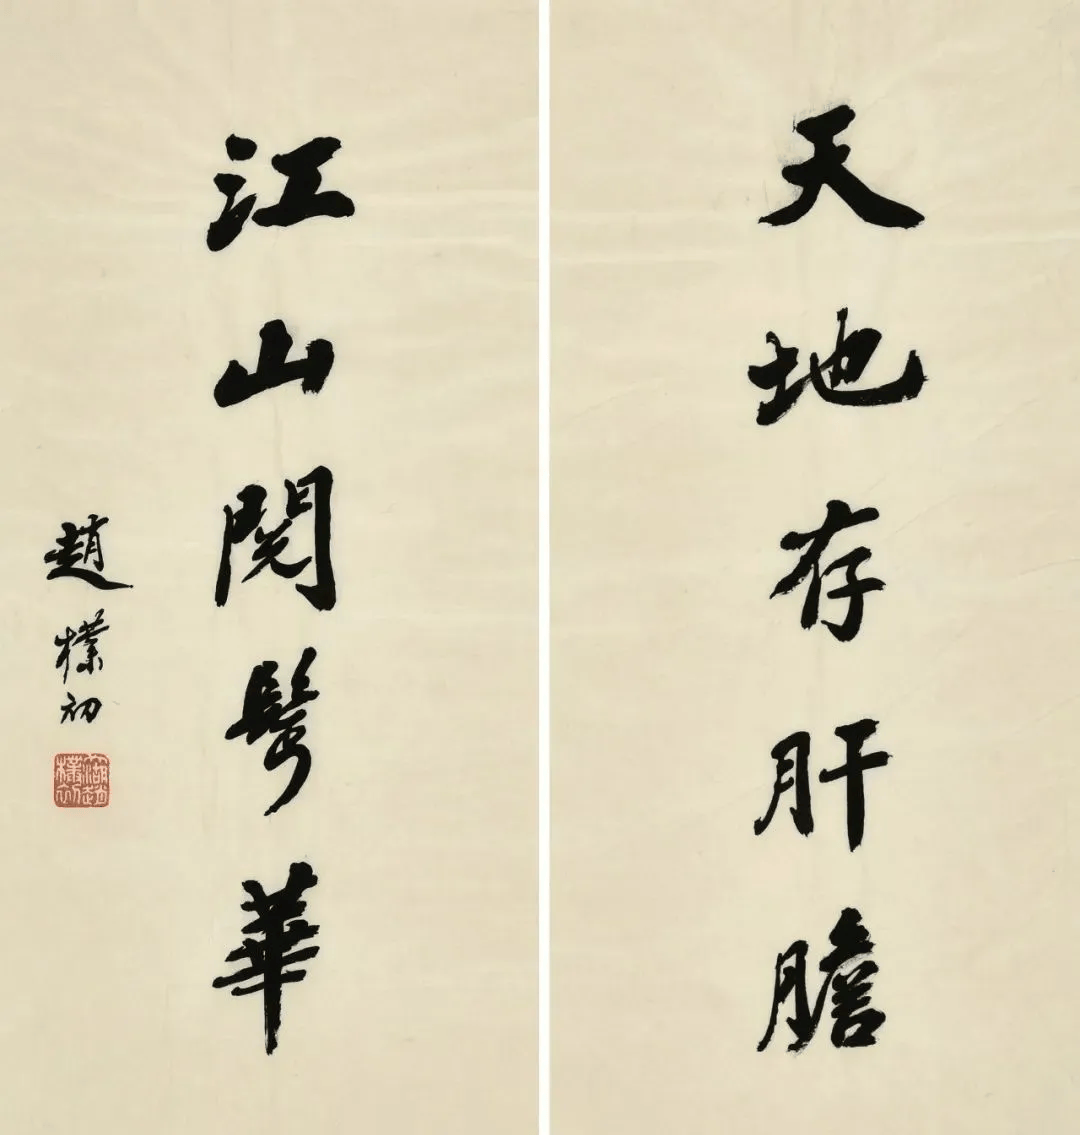 天地存肝膽
江山閱鬢華
趙樸初